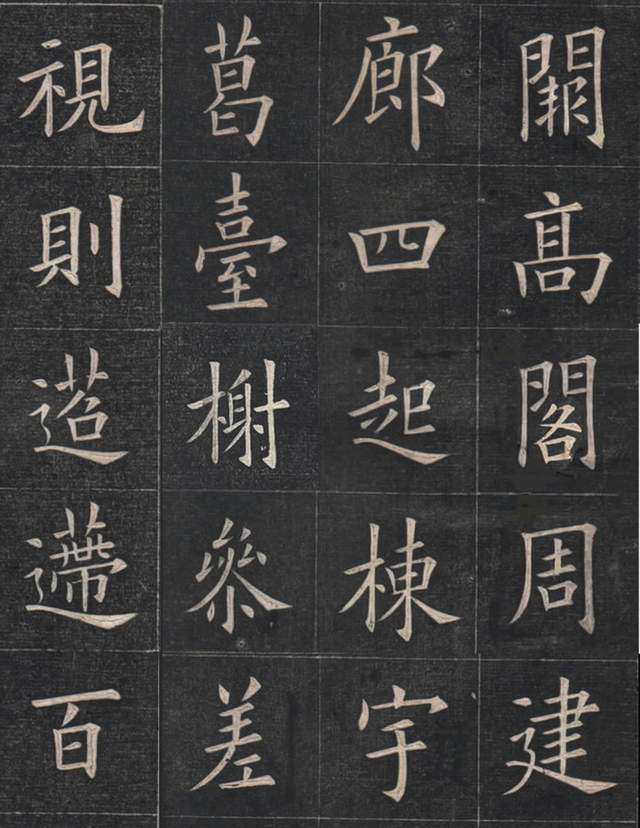 闕高閣周建
廊四起棟宇
葛臺榭參差
視則迢遰百